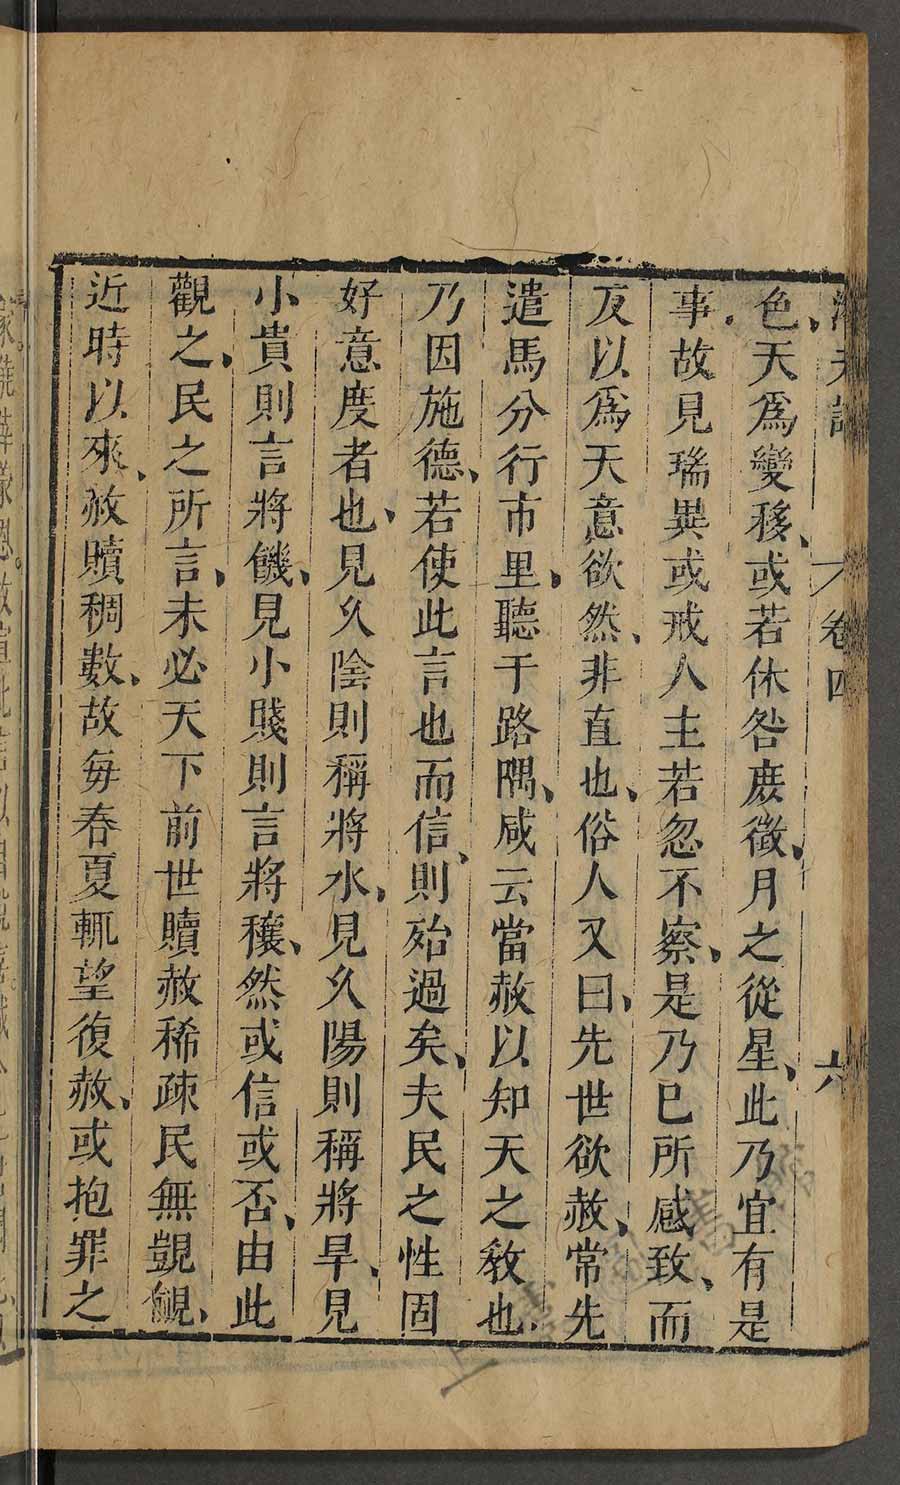 卷四 六
色、天爲變移、或若休咎庶徵、月之從星、此乃宜有是
事、故見瑞異或戒人主若忽不察、是乃巳所感致、而
反以爲天意欲然、非直也、俗人又曰、先世欲赦、常先
遣馬分行市里、聽于路隅、咸云當赦以知天之教也、
乃因施德、若使此言也而信、則殆過矣、夫民之性固
好意度者也、見久陰則稱將水、見久陽則稱將旱、見
小貴則言將饑、見小賤則言將穰、然或信或否、由此
觀之、民之所言、未必天下前世贖赦稀疎民無覬覦、
近時以來、赦贖稠數、故每春夏輒望復赦、或抱罪之